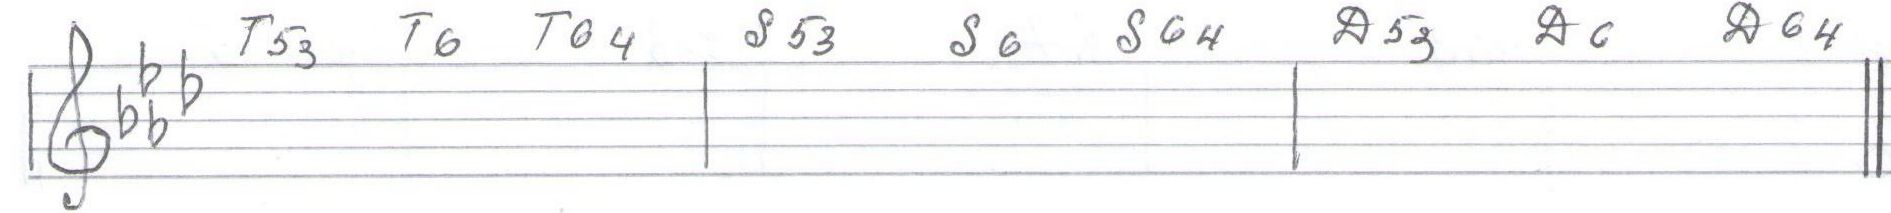 T53 T6 T64 S53 S6 S64 D53 D6 D64